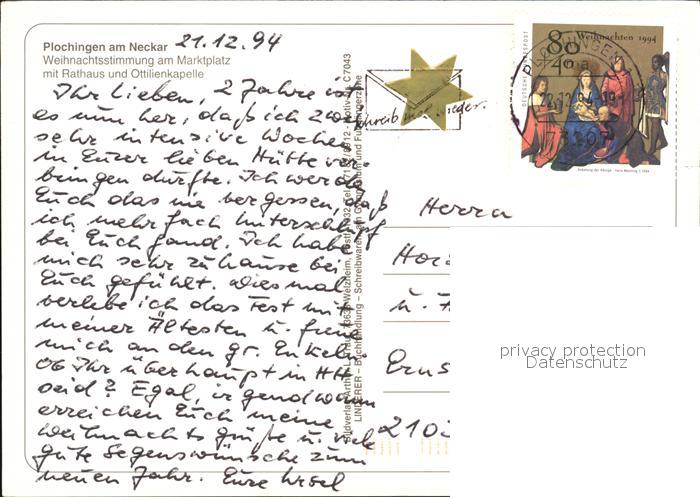 Plochingen am Neckar
Weihnachtsstimmung am Marktplatz
mit Rathaus und Ottilienkapelle
21.12.94
Ihr Lieben, 2 Jahre ist
es nun her, daß ich zwei
sehr intensive Wochen
in Eurer lieben Hütte ver-
bringen durfte. Ich werde
Euch das nie vergessen, daß
ich mehrfach Unterschlupf
bei Euch fand. Ich habe
mich sehr zuhause bei
Euch gefühlt. Diesmal
verlebe ich das Fest mit
meiner Ältesten u. freue
mich an den gr. Enkeln.
Ob Ihr überhaupt in HH
seid? Egal, irgendwann
erreichen Euch meine
Weihnachts grüße u. viele
gute Segenswünsche zum
neuen Jahr. Eure Ursel
Schreib mal wieder.
Bildverlag
LINDERER – Buchhandlung – Schreibwaren am Gymnasium und Fußgängerzone
C7043
DEUTSCHE BUNDESPOST
80
+40
Weihnachten 1994
PLOCHINGEN
Herrn
Ho
u.
Erns
210
privacy protection
Datenschutz